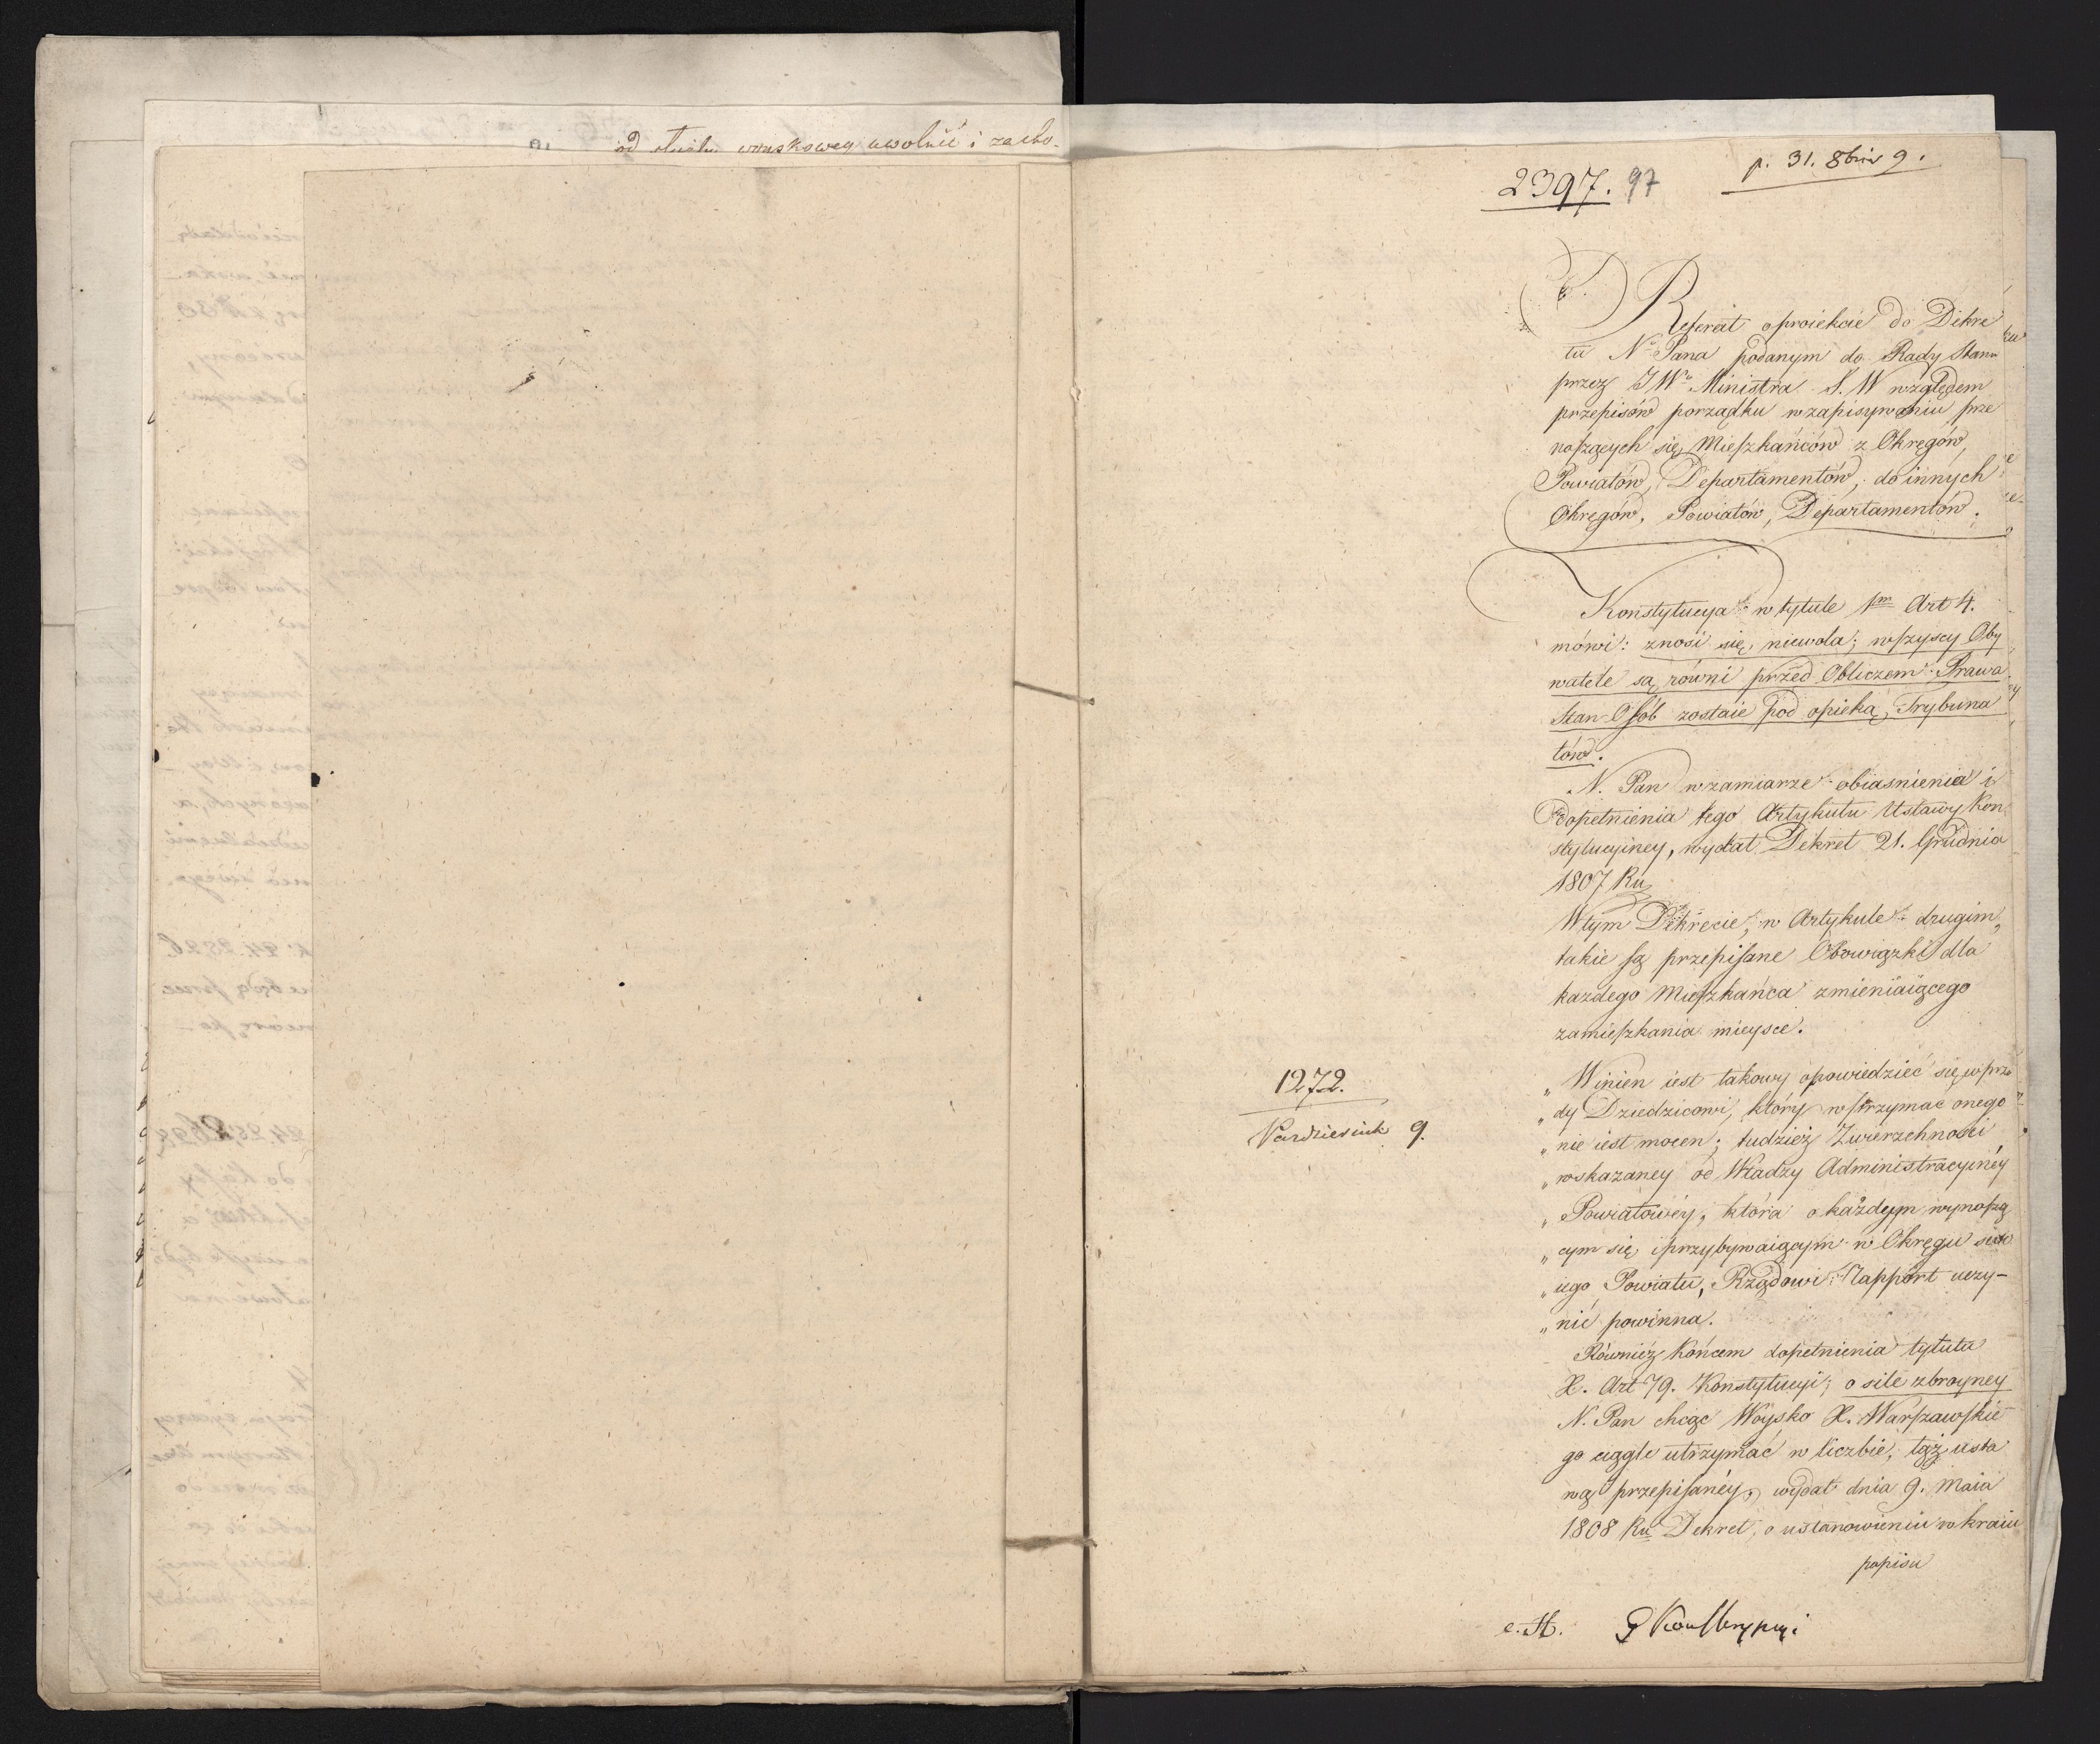 uwolnić i zacho-
2397. 97
p. 31. 8bris 9.
Referat o proiekcie do Dekre
tu N. Pana podanym do Rady Stanu
przez JWo Ministra S. W względem
przepisów porządku w zapisywaniu prze
noszących się Mieszkańców z Okręgów,
Powiatów, Departamentów, do innych
Okręgów, Powiatów, Departamentów.
Konstytucya w tytule 1m Art 4.
mówi: znosi się niewola; wszyscy Oby
watele są równi przed Obliczem Prawa
Stan Osób zostaie pod opieką Trybuna
łów.
N. Pan w zamiarze obiasnienia i
dopełnienia tego Artykułu Ustawy Kon
stytucyiney, wydał Dekret 21. Grudnia
1807 Ru
W tym Dekrecie, w Artykule drugim,
takie są przepisane Obowiązki dla
kazdego Mieszkańca zmieniaiącego
zamieszkania mieysce.
„Winien iest takowy opowiedzieć się wprzó
„dy Dziedzicowi, który wstrzymać onego
„nie iest mocen; tudzież Zwierzchności
„wskazaney od Władzy Administracyiney
„Powiatowéy, która o każdym wynoszą
„cym się i przybywaiącym w Okręgu swo
„iego Powiatu, Rządowi Rapport uczy-
„nić powinna.
1272.
Pazdziernik 9.
Również końcem dopełnienia tytułu
X. Art 79. Konstytucyi; o sile zbroyney
N. Pan chcąc Woysko X. Warszawskie
go ciągle utrzymać w liczbie, tąż usta
wą przepisanéy, wydał dnia 9. Maia
1808 Ru Dekret, o ustanowieniu w kraiu
popisu